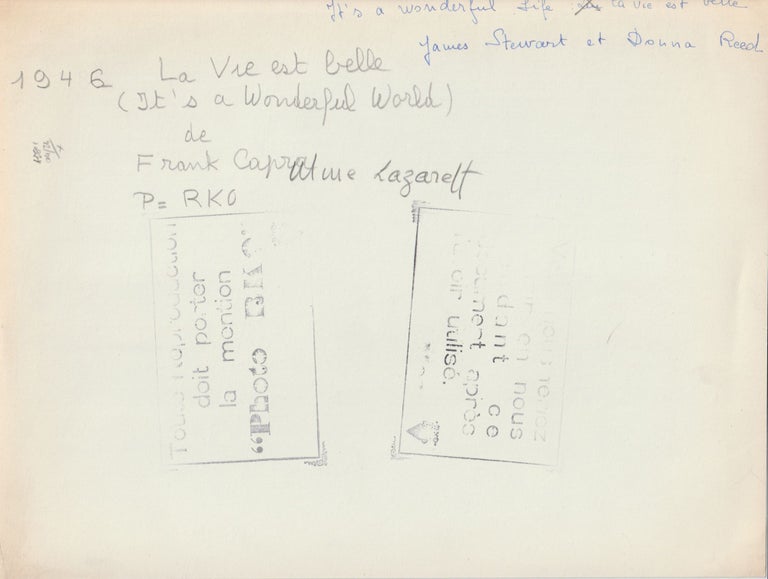 It's a wonderful Life la vie est belle
James Stewart et Donna Reed
1946 La Vie est belle
(It's a Wonderful World)
de
Frank Capra Mme Lazareff
P= RKO
Toute Reproduction
doit porter
la mention
"Photo RKO"
en nous
dant ce
après
utilisé.